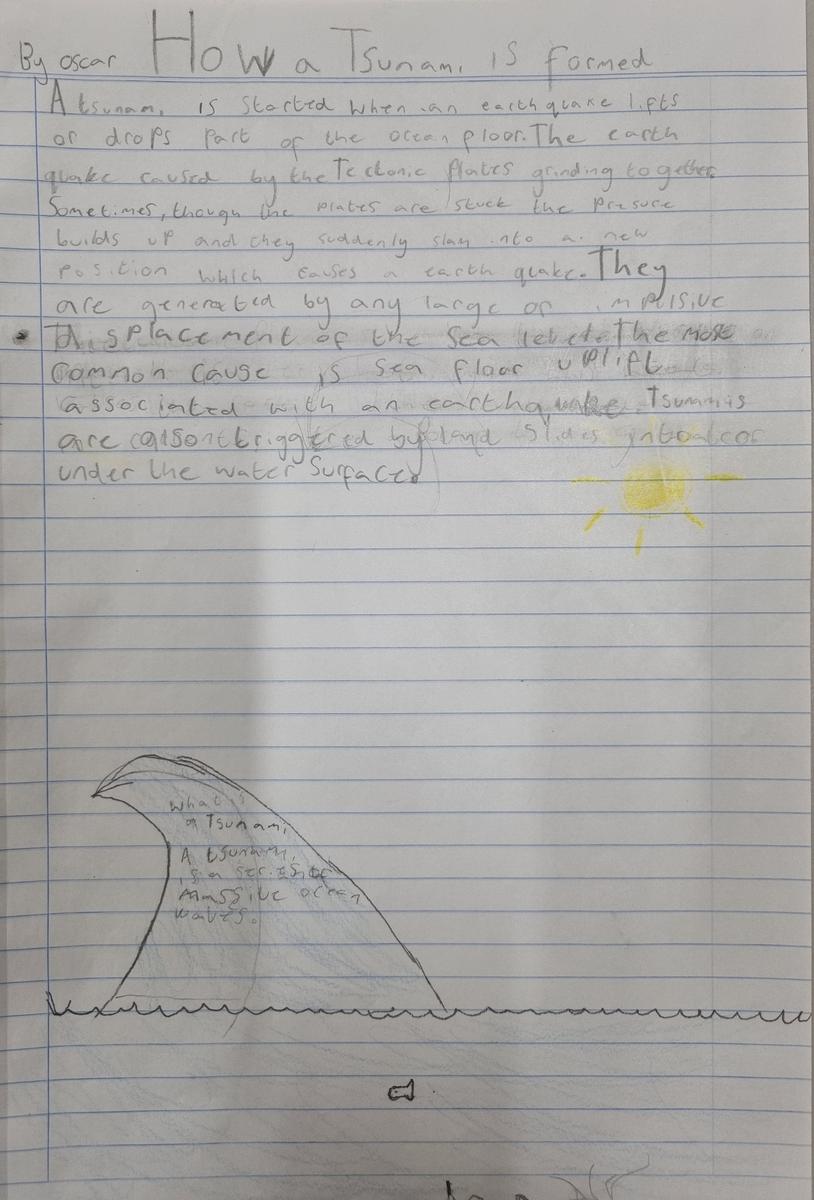 By oscar How a Tsunami is formed
A tsunami is started when an earth quake lifts
or drops part of the ocean floor. The earth
quake caused by the Tectonic plates grinding together
Sometimes, though the plates are stuck the presure
builds up and they suddenly slam into a new
position which causes a earth quake. They
are generated by any large or impulsive
displacement of the sea level. The most
common cause is sea floor uplift
associated with an earthquake. Tsunamis
are also triggered by land slides into or
under the water surface
what is
a Tsunami
A tsunami
is a series of
massive ocean
waves.